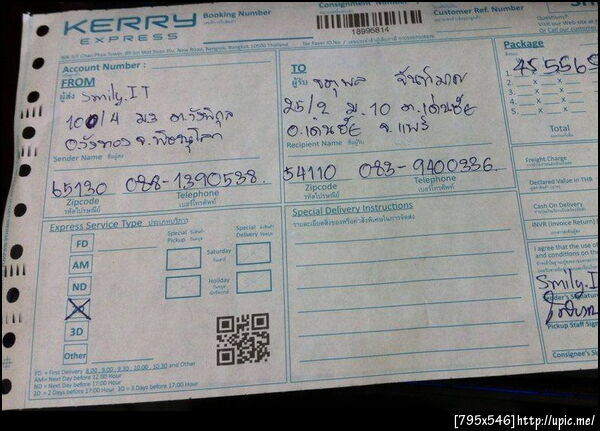 KERRY
EXPRESS
Booking Number
Consignment Number
18995814
Customer Ref. Number
Account Number :
FROM
ผู้ส่ง Smily.IT
100/4 ม.3 ต.วังพิกุล
อ.วังทอง จ.พิษณุโลก
Sender Name ชื่อผู้ส่ง
65130 088-1390538
Zipcode Telephone
รหัสไปรษณีย์ เบอร์โทรศัพท์
TO
ผู้รับ
25/2 ม.10 ต.เด่นชัย
อ.เด่นชัย จ.แพร่
Recipient Name ชื่อผู้รับ
54110 083-9400336
Zipcode Telephone
รหัสไปรษณีย์ เบอร์โทรศัพท์
Package
1.
2. x x
3. x x
4. x x
5. x x
Total
Freight Charge
Declared Value in THB
Cash On Delivery
INVR (Invoice Return)
I agree that the use of
and conditions on the
Smily.I
Sender's Signature
Pickup Staff
Consignee's
Express Service Type ประเภทบริการ
FD
AM
ND
2D
3D
Other
Special Pickup
Special Delivery
Saturday
Holiday
Special Delivery Instructions
รายละเอียดสิ่งของหรือคำสั่งพิเศษในการจัดส่ง
FD = First Delivery 8.00, 9.00, 9.30, 10.00, 10.30 and Other
AM= Next Day before 12:00 Hour
ND = Next Day before 17:00 Hour
2D = 2 Days before 17:00 Hour 3D = 3 Days before 17:00 Hour
[795x546]http://upic.me/